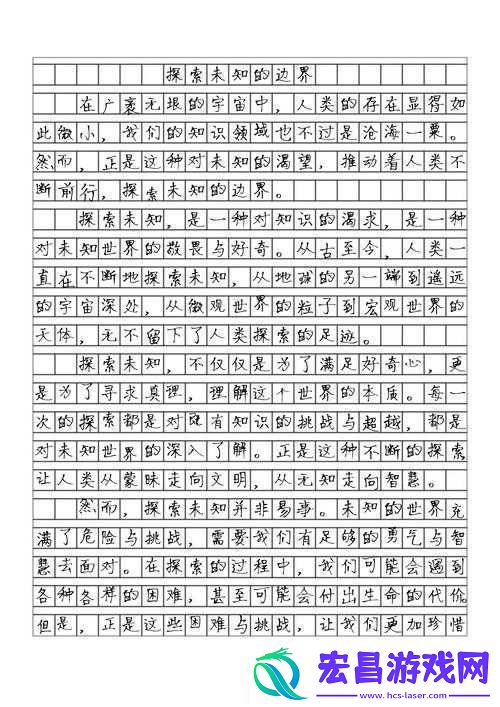 探索未知的边界
在广袤无垠的宇宙中，人类的存在显得如
此微小，我们的知识领域也不过是沧海一粟。
然而，正是这种对未知的渴望，推动着人类不
断前行，探索未知的边界。
探索未知，是一种对知识的渴求，是一种
对未知世界的敬畏与好奇。从古至今，人类一
直在不断地探索未知，从地球的另一端到遥远
的宇宙深处，从微观世界的粒子到宏观世界的
天体，无不留下了人类探索的足迹。
探索未知，不仅仅是为了满足好奇心，更
是为了寻求真理，理解这个世界的本质。每一
次的探索都是对既有知识的挑战与超越，都是
对未知世界的深入了解。正是这种不断的探索
让人类从蒙昧走向文明，从无知走向智慧。
然而，探索未知并非易事。未知的世界充
满了危险与挑战，需要我们有足够的勇气与智
慧去面对。在探索的过程中，我们可能会遇到
各种各样的困难，甚至可能会付出生命的代价。
但是，正是这些困难与挑战，让我们更加珍惜
宏昌游戏网
www.hcs-laser.com